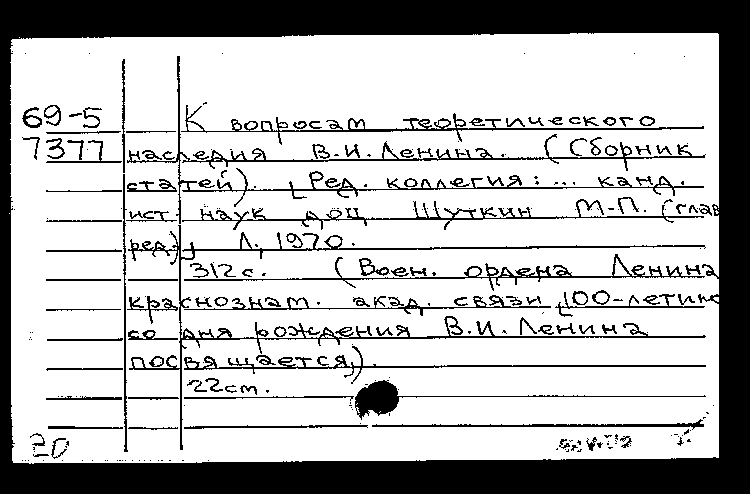 69-5 К вопросам теоретического
7377 наследия В.И. Ленина. (Сборник
статей). [Ред. коллегия: ... канд.
ист. наук доц Шуткин М.П. (глав
ред.)] Л., 1970.
312 с. (Воен. ордена Ленина
краснознам. акад. связи [100-летию
со дня рождения В.И. Ленина
посвящается]).
22 см.
20